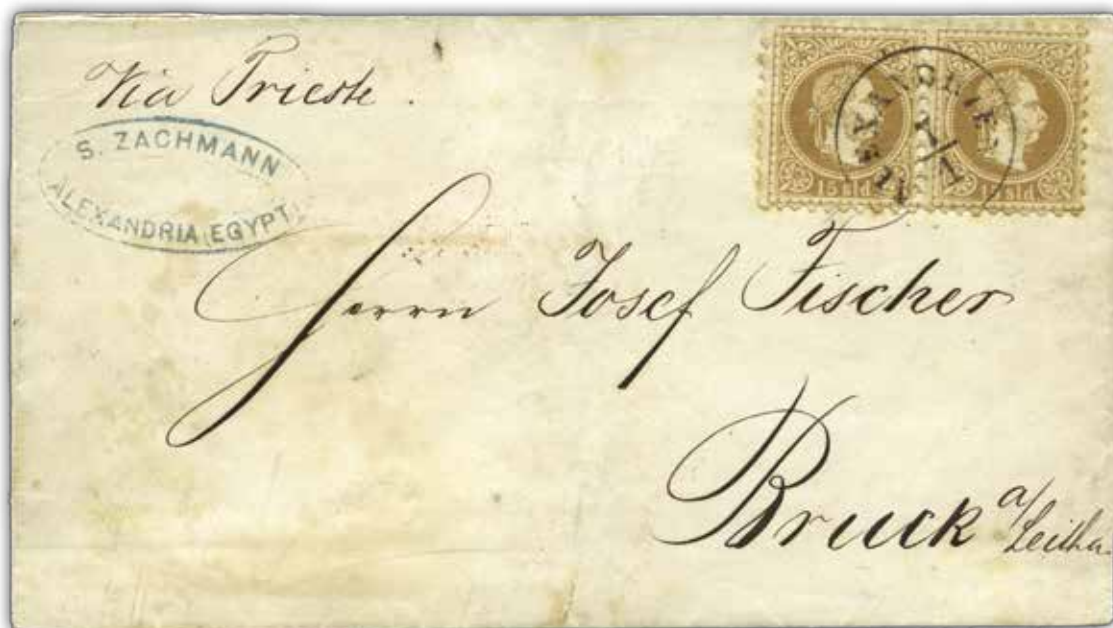 Via Trieste.
S. ZACHMANN
ALEXANDRIA (EGYPT)
ALEXANDRIEN
1/1
15 sld 15 sld
Herrn Josef Fischer
Bruck a/Leitha.